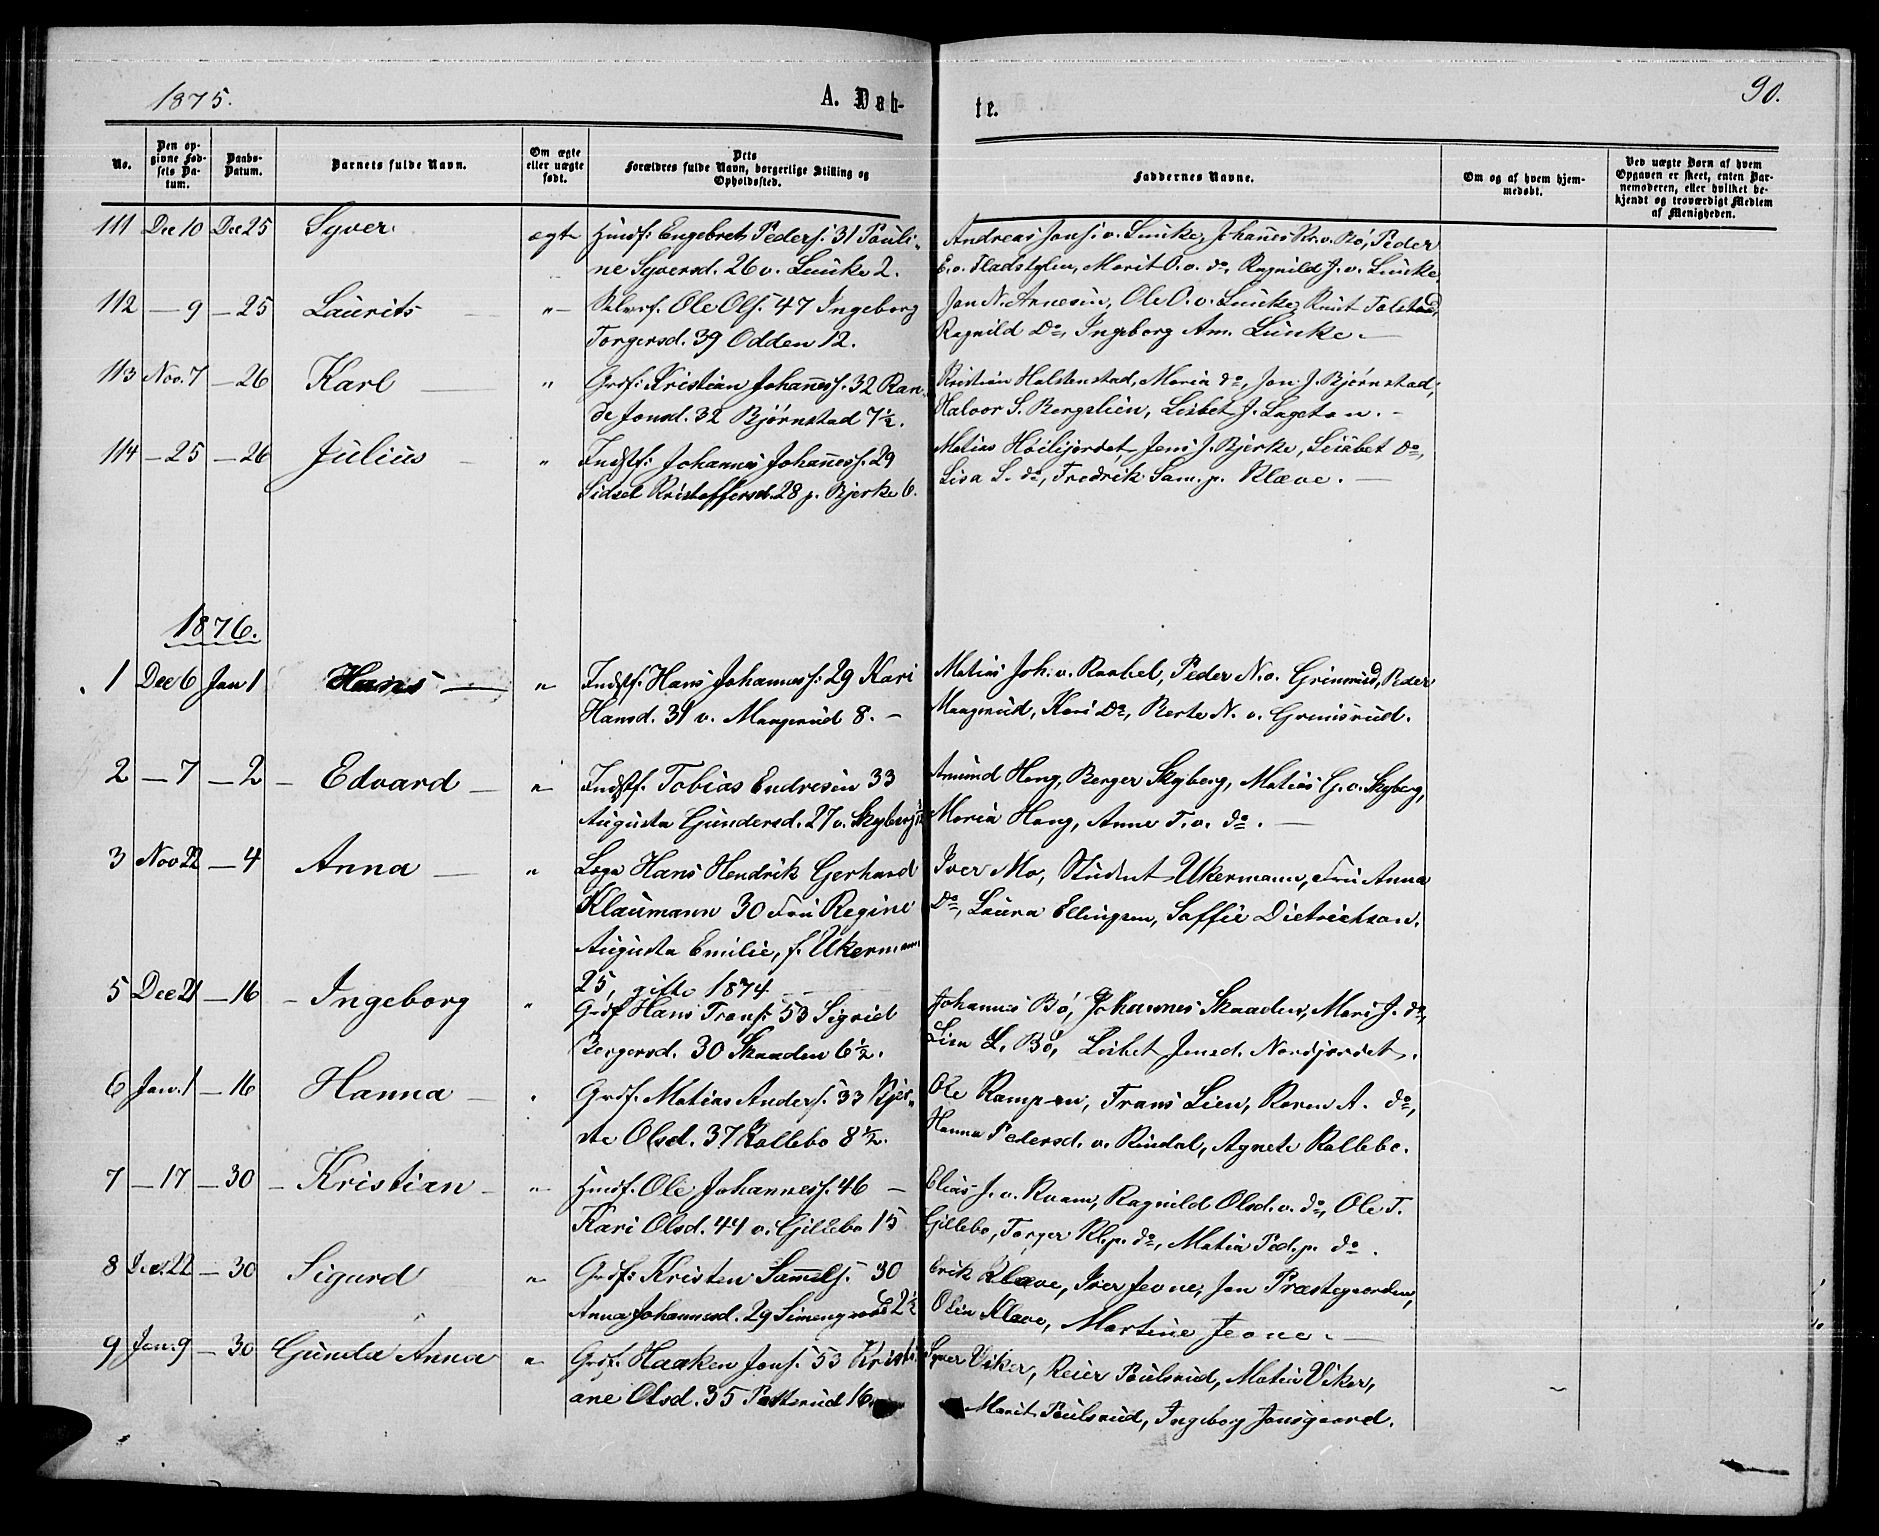 1875.
A. Døb-
te.
90.
No.
Den op-
givne Fød-
sels Da-
tum.
Daabs-
Datum.
Barnets fulde Navn.
Om ægte
eller uægte
født.
Dets
Forældres fulde Navn, borgerlige Stilling og
Opholdssted.
Faddernes Navne.
Om og af hvem hjem-
medøbt.
Ved uægte Børn af hvem
Opgaven er skeet, enten Bar-
nemoderen, eller hvilket be-
kjendt og troværdigt Medlem
af Menigheden.
111 Dec 10 Dec 25 Syver ægte Husf: Engebret Peders. 31 Pauli-
ne Syversd. 26 v. Lunke 2.
Andreas Jons. v. Lunke, Johanes Kr. v. Bö, Peder
E. v. Fladstylen, Marit O. v. do, Ragnild J. v. Lunke
112 — 9 — 25 Laurits „ Selvsf. Ole Ols. 47 Ingeborg
Torgersd. 39 Odden 12.
Jon N. Arnesen, Ole O. v. Lunke, Knut Tolstad,
Ragnild Do, Ingeborg Am. Lunke. —
113 Nov. 7 — 26 Karl — „ Grdf: Kristian Johaness. 32 Ran-
de Jonsd. 32 Bjørnstad 7½.
Kristian Holstenstad, Maria do, Jon J. Bjørnstad,
Halvor S. Bergslien, Lisbet J. Sageton. -
114 — 25 — 26 Julius „ Indstf: Johannes Johaness. 29
Sidsel Kristoffersd. 28 p. Bjerke 6.
Matias Höilijordet, Jens J. Bjerke, Lisabet Do,
Lisa L. do, Fredrik Sam. p. Klæve. —
1876.
1 Dec 6 Jan 1 Hans — „ Indstf. Hans Johanness: 29 Kari
Hansd. 31 v. Maagerud 8. -
Matias Joh. v. Raabel, Peder N. v. Grimsrud, Peder
Maagerud, Kari Do, Berte N. v. Grimsrud.
2 — 7 — 2 — Edvard — „ Indstf. Tobias Endresen 33
Augusta Gundersd. 27 v. Skyberg 12
Amund Haug, Berger Skyberg, Matias G. v. Skyberg,
Maria Haug, Anne T. v. do. —
3 Nov 22 — 4 Anna — „ Læge Hans Hendrik Gerhard
Klaumann 30 Fru Regine
Augusta Emilie, f. Ukermann
25, gifte 1874
Iver Mo, Student Ukermann, Fru Anna
Do, Laura Ellingsen, Soffie Dietrichson.
5 Dec 21 — 16 — Ingeborg „ Grdf Hans Frans: 53 Sigrid
Bergersd. 30 Skaaden 6½.
Johannes Bö, Johannes Skaaden, Mari J. do,
Lisa L. Bö, Lisbet Jensd. Nordjordet.
6 Jan. 1 — 16 Hanna — „ Grdf. Matias Anders. 33 Kjer-
ste Olsd. 37 Kallebo 8½.
Ole Rampen, Frans Lien, Karen A. do,
Hanna Pedersd. v. Rindal, Agnete Kallebo.
7 — 17 — 30 — Kristian — „ Husf. Ole Johanness. 46 —
Kari Olsd. 44 v. Gillebo 15
Elias J. v. Kvam, Ragnild Olsd. v. do, Ole T.
Gillebo, Torger Kl. p. do, Matia Ped. p. do.
8 Dec. 22 — 30 Sigurd „ Grdf: Kristen Samuels. 30
Anna Johannesd. 29 Simengaard 2½
Erik Klæve, Iver Jevne, Jon Præstegaarden,
Olea Klæve, Martine Jevne. —
9 Jan. 9 — 30 Gunda Anna „ Grdf. Haaken Jons. 53 Kristi
ane Olsd. 35 Pattsrud 16.
Syver Viker, Reier Paulsrud, Matia Viker,
Marit Paulsrud, Ingeborg Jonsgaard.